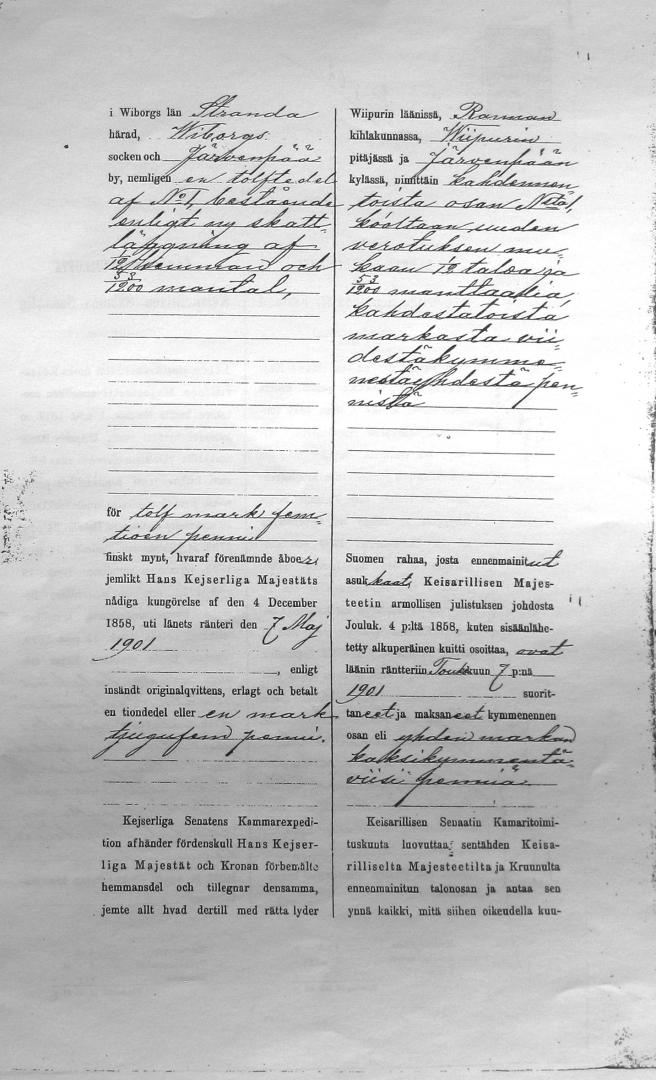 i Wiborgs län Stranda
härad, Wiborgs
socken och Järvenpää
by, nemligen en tolftedel
af No 1, bestående
enligt ny skatt-
läggning af
1/12 hemman och
53/1200 mantal,
för tolf mark fem-
tioen penni
finskt mynt, hvaraf förenämnde åboer,
jemlikt Hans Kejserliga Majestäts
nådiga kungörelse af den 4 December
1858, uti länets ränteri den 7 Maj
1901
, enligt
insändt originalqvittens, erlagt och betalt
en tiondedel eller en mark
tjugufem penni.
Kejserliga Senatens Kammarexpedi-
tion afhänder fördenskull Hans Kejser-
liga Majestät och Kronan förbemälte
hemmansdel och tillegnar densamma,
jemte allt hvad dertill med rätta lyder
Wiipurin läänissä, Rannan
kihlakunnassa, Wiipurin
pitäjässä ja Järvenpään
kylässä, nimittäin kahdennen-
toista osan No 1 stä,
kooltaan uuden
verotuksen mu-
kaan 1/12 taloa ja
53/1200 manttaalia,
kahdestatoista
markasta vii-
destäkymme-
nestäyhdestä pen-
nistä
Suomen rahaa, josta ennenmainitut
asukkaat, Keisarillisen Majes-
teetin armollisen julistuksen johdosta
Jouluk. 4 p:ltä 1858, kuten sisäänlähe-
tetty alkuperäinen kuitti osoittaa, ovat
läänin ränttteriin Toukokuun 7 p:nä
1901 suorit-
taneet ja maksaneet kymmenennen
osan eli yhden markan
kaksikymmentä-
viisi penniä.
Keisarillisen Senaatin Kamaritoimi-
tuskunta luovuttaa sentähden Keisa-
rilliselta Majesteetilta ja Kruunulta
ennenmainitun talonosan ja antaa sen
ynnä kaikki, mitä siihen oikeudella kuu-